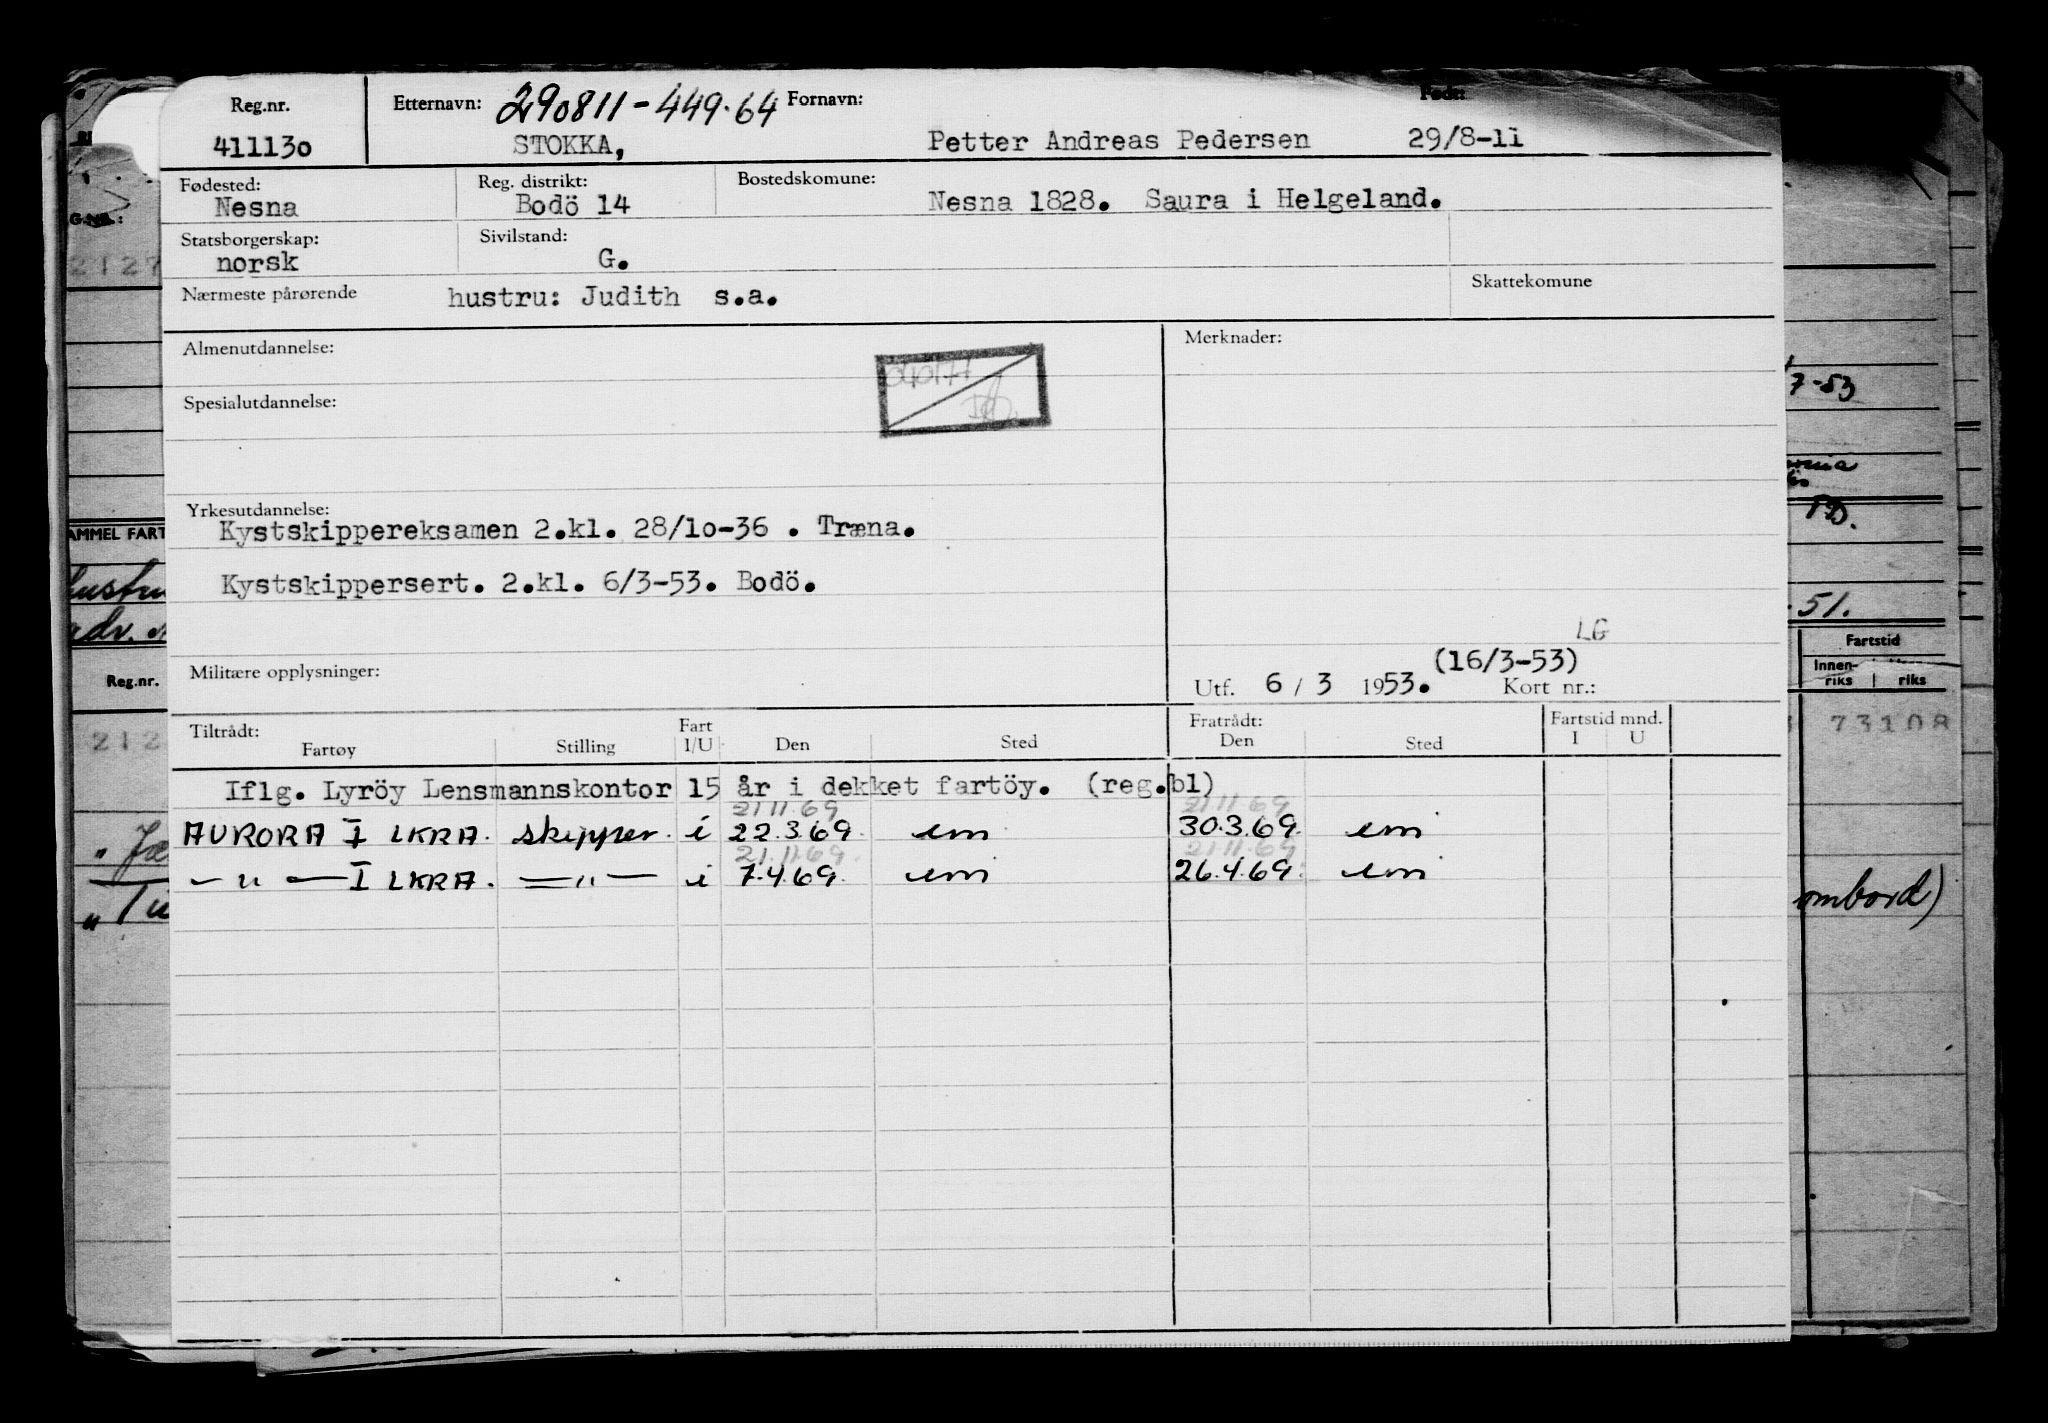 Reg.nr. Etternavn: 290811-449.64 Fornavn: Født:
411130 STOKKA, Petter Andreas Pedersen 29/8-11
Fødested: Reg. distrikt: Bostedskomune:
Nesna Bodö 14 Nesna 1828. Saura i Helgeland.
Statsborgerskap: Sivilstand:
norsk G.
Nærmeste pårørende hustru: Judith s.a. Skattekomune
Almenutdannelse: Merknader:
040177
Spesialutdannelse:
Yrkesutdannelse:
Kystskippereksamen 2.kl. 28/10-36 . Træna.
Kystskippersert. 2.kl. 6/3-53. Bodö.
LG
(16/3-53)
Militære opplysninger: Utf. 6 / 3 1953. Kort nr.:
Tiltrådt: Fart Fratrådt: Fartstid mnd.
Fartøy Stilling I/U Den Sted Den Sted I U
Iflg. Lyröy Lensmannskontor 15 år i dekket fartöy. (reg.bl)
21.11.69 21.11.69
AURORA I LKRA. skipper. i 22.3.69. em 30.3.69. em
21.11.69. 21.11.69
— " — I LKRA. — " — i 7.4.69. em 26.4.69. em
G.NR.:
2127
AMMEL FART
hustru
adv.
Reg.nr.
212
7-53
51.
Fartstid
Innen-
riks riks
73108
ombord)